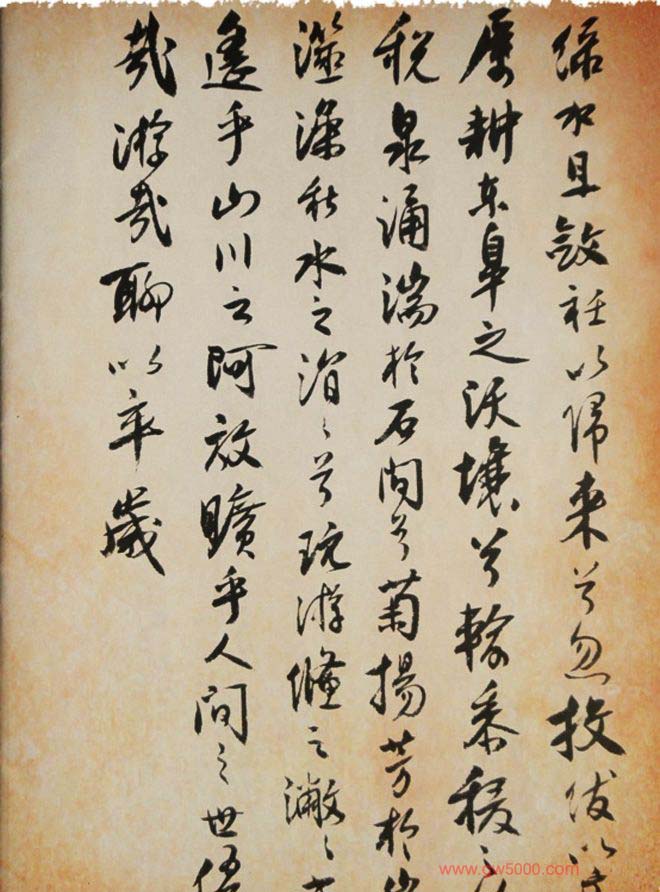 緑水且斂衽以歸来兮忽投紱以
厲耕東皋之沃壤兮輸黍稷之
税泉涌湍於石間兮菊揚芳於
澨澡秋水之涓々兮玩游鯈之潎々
遥乎山川之阿放曠乎人間之世優
哉游哉聊以卒歲
www.gw5000.com